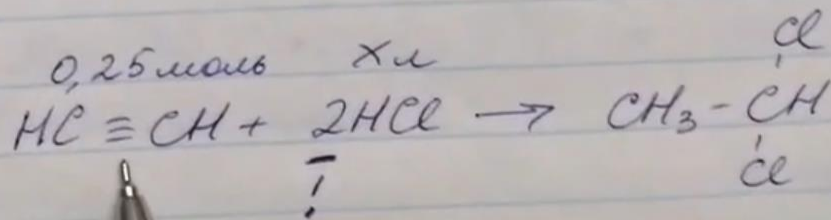 0,25 моль    X л
HC ≡ CH + 2HCl → CH₃ - CH
Cl
Cl
!